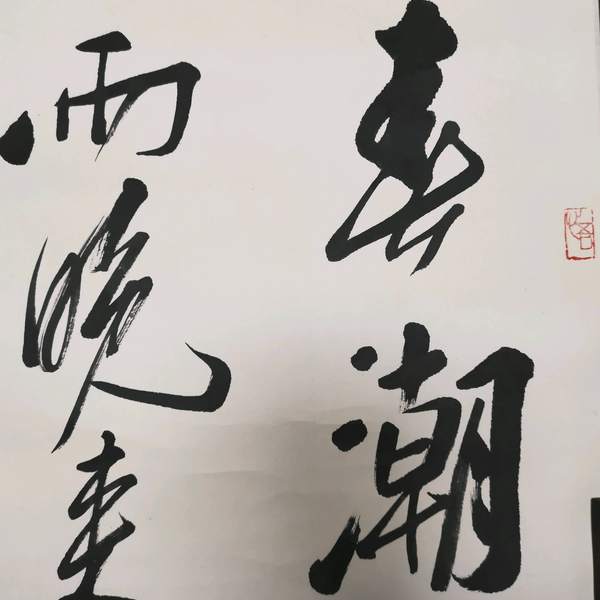 春潮
雨晚来